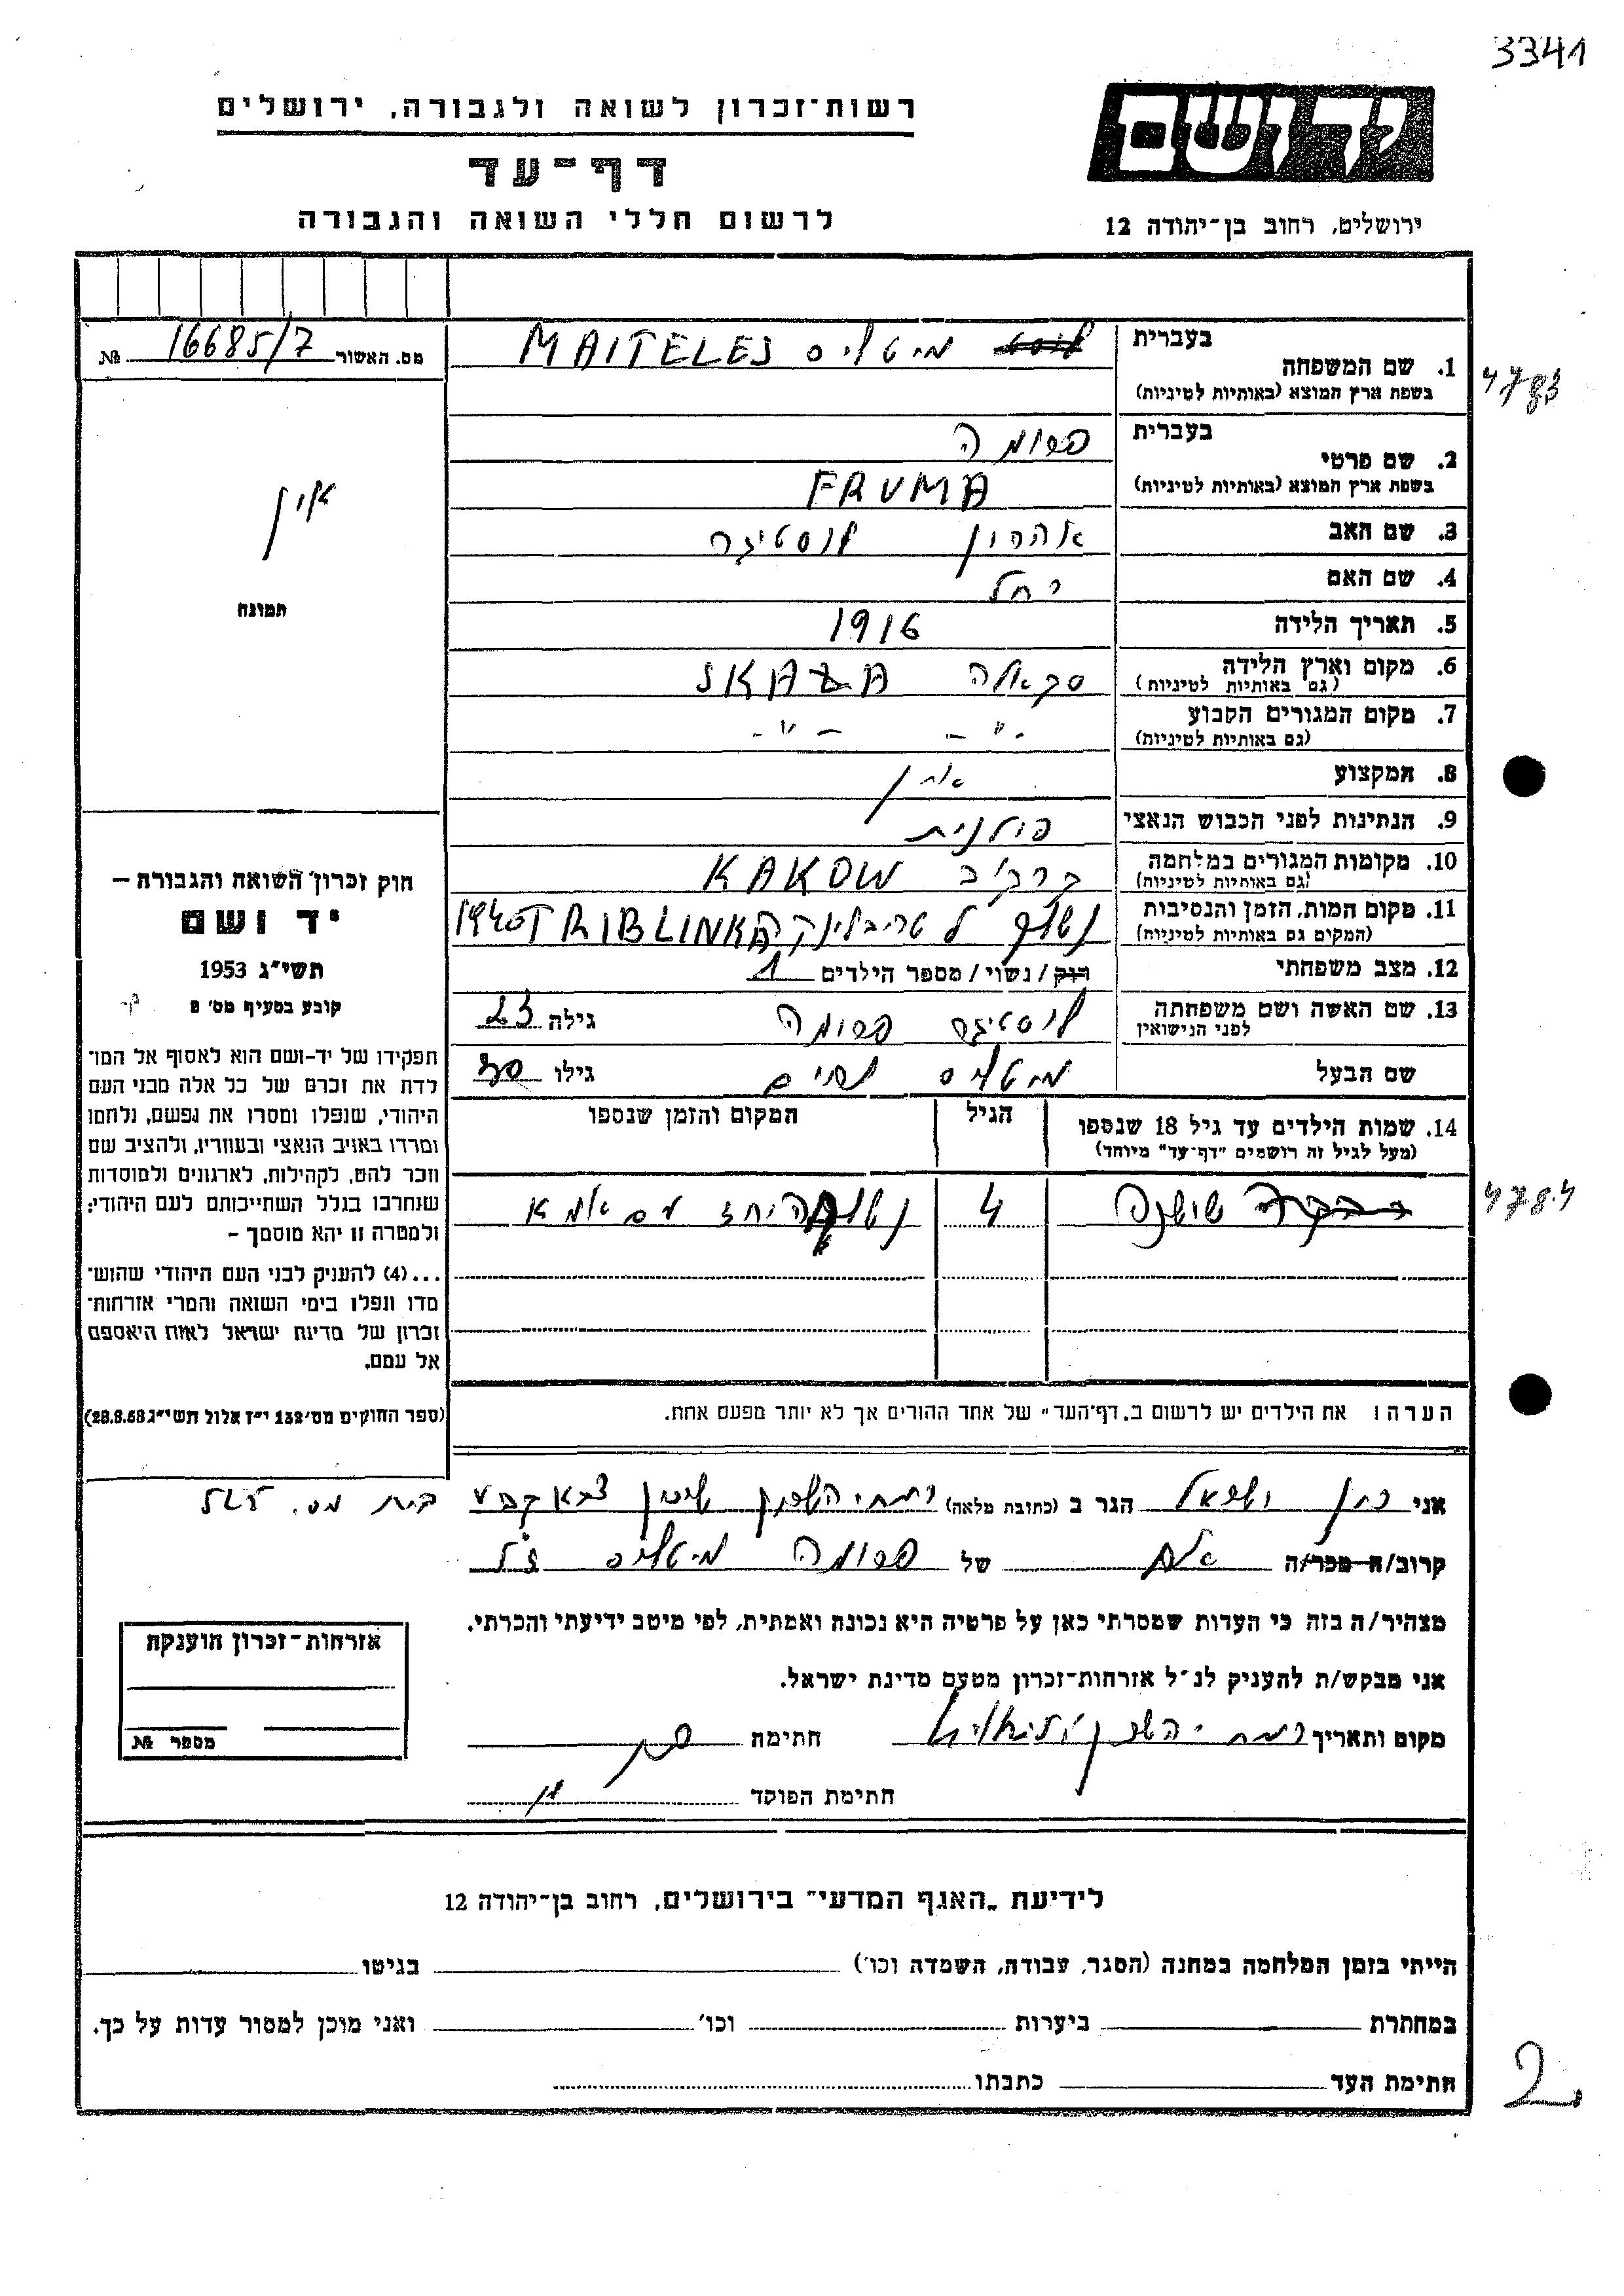 3341
רשות־זכרון לשואה ולגבורה, ירושלים
יד ושם
דף־עד
לרשום חללי השואה והגבורה
ירושלים, רחוב בן־יהודה 12
מס. האשור 16685/7 №
בעברית
1. שם המשפחה מיטליס MAITELES
בשפת ארץ המוצא (באותיות לטיניות)
4783
בעברית פרומה
2. שם פרטי
בשפת ארץ המוצא (באותיות לטיניות) FRUMA
3. שם האב אהרון לוסטיגר
4. שם האם רחל
5. תאריך הלידה 1916
6. מקום וארץ הלידה סקאלה SKAŁA
(גם באותיות לטיניות)
7. מקום המגורים הקבוע -"- -"-
(גם באותיות לטיניות)
8. המקצוע אין
9. הנתינות לפני הכבוש הנאצי פולנית
10. מקומות המגורים במלחמה KAKOW
(גם באותיות לטיניות)
11. מקום המות, הזמן והנסיבות נשלח ל טריבלינקה TRIBLINKA 1940
(המקום גם באותיות לטיניות)
12. מצב משפחתי רווק / נשוי / מספר הילדים 1
13. שם האשה ושם משפחתה לוסטיגר פרומה גילה 23
לפני הנישואין
שם הבעל מיטליס גילו 30
14. שמות הילדים עד גיל 18 שנספו הגיל המקום והזמן שנספו
(מעל לגיל זה רושמים "דף־עד" מיוחד)
שושנה 4 נשלחה יחד עם אמא
4784
הערה: את הילדים יש לרשום ב„דף־העד" של אחד ההורים אך לא יותר מפעם אחת.
אין
תמונה
חוק זכרון השואה והגבורה —
יד ושם
תשי"ג 1953
קובע בסעיף מס' 2
תפקידו של יד-ושם הוא לאסוף אל המו־
לדת את זכרם של כל אלה מבני העם
היהודי, שנפלו ומסרו את נפשם, נלחמו
ומרדו באויב הנאצי ובעוזריו, ולהציב שם
וזכר להם, לקהילות, לארגונים ולמוסדות
שנחרבו בגלל השתייכותם לעם היהודי;
ולמטרה זו יהא מוסמך —
...(4) להעניק לבני העם היהודי שהוש־
מדו ונפלו בימי השואה והמרי אזרחות־
זכרון של מדינת ישראל לאות היאספם
אל עמם.
(ספר החוקים מס' 132 י"ז אלול תשי"ג 28.8.53)
אני הגר ב (כתובת מלאה) רמת השרון שיכון צבא קבע בית מס.
קרוב/ה מכר/ה של פרומה מיטליס ז"ל
מצהיר/ה בזה כי העדות שמסרתי כאן על פרטיה היא נכונה ואמתית, לפי מיטב ידיעתי והכרתי.
אני מבקש/ת להעניק לנ"ל אזרחות־זכרון מטעם מדינת ישראל.
מקום ותאריך רמת השרון חתימה
חתימת הפוקד
אזרחות־זכרון הוענקה
מספר №
לידיעת „האגף המדעי" בירושלים, רחוב בן־יהודה 12
הייתי בזמן המלחמה במחנה (הסגר, עבודה, השמדה וכו') בגיטו
במחתרת ביערות וכו' ואני מוכן למסור עדות על כך.
חתימת העד כתבתו
2